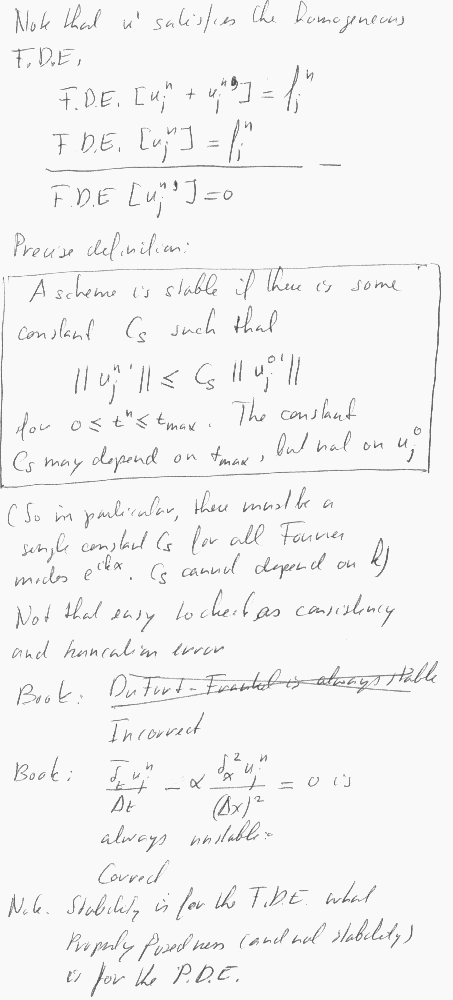 Note that u' satisfies the homogeneous
F.D.E.
F.D.E. [u_j^n + u_j^n'] = f_j^n
F.D.E. [u_j^n] = f_j^n
—
F.D.E [u_j^n'] = 0
Precise definition:
A scheme is stable if there is some
constant C_s such that
||u_j^n'|| ≤ C_s ||u_j^0'||
for 0 ≤ t^n ≤ t_max. The constant
C_s may depend on t_max, but not on u_j^0
(So in particular, there must be a
single constant C_s for all Fourier
modes e^ikx. C_s cannot depend on k)
Not that easy to check as consistency
and truncation error
Book: DuFort-Frankel is always stable
Incorrect
Book: δ̄_t u_j^n / Δt - α δ_x^2 u_j^n / (Δx)^2 = 0 is
always unstable.
Correct
Note. Stability is for the F.D.E. what
Properly Posedness (and not stability)
is for the P.D.E.